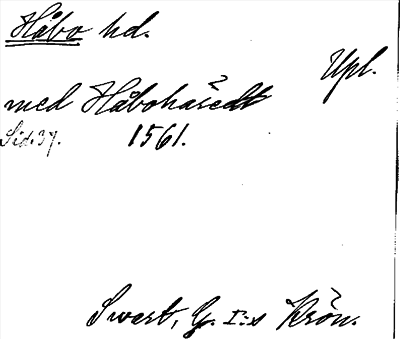 Håbo hd.
Upl.
med Håboháredt
Sid. 37. 1561.
Swart, G. I:s Krön.